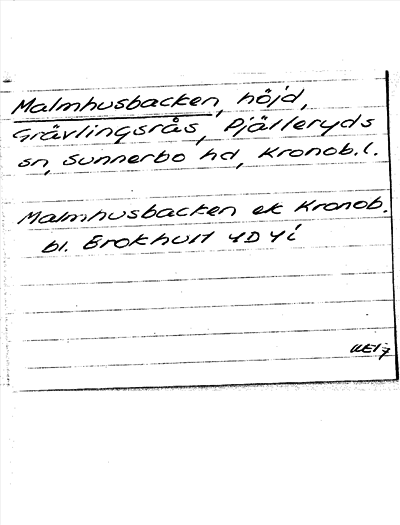 Malmhusbacken, höjd,
Grävlingsrås, Pjätteryds
sn, Sunnerbo hd, Kronob.l.
Malmhusbacken ek Kronob.
bl. Brokhult 4D 4i